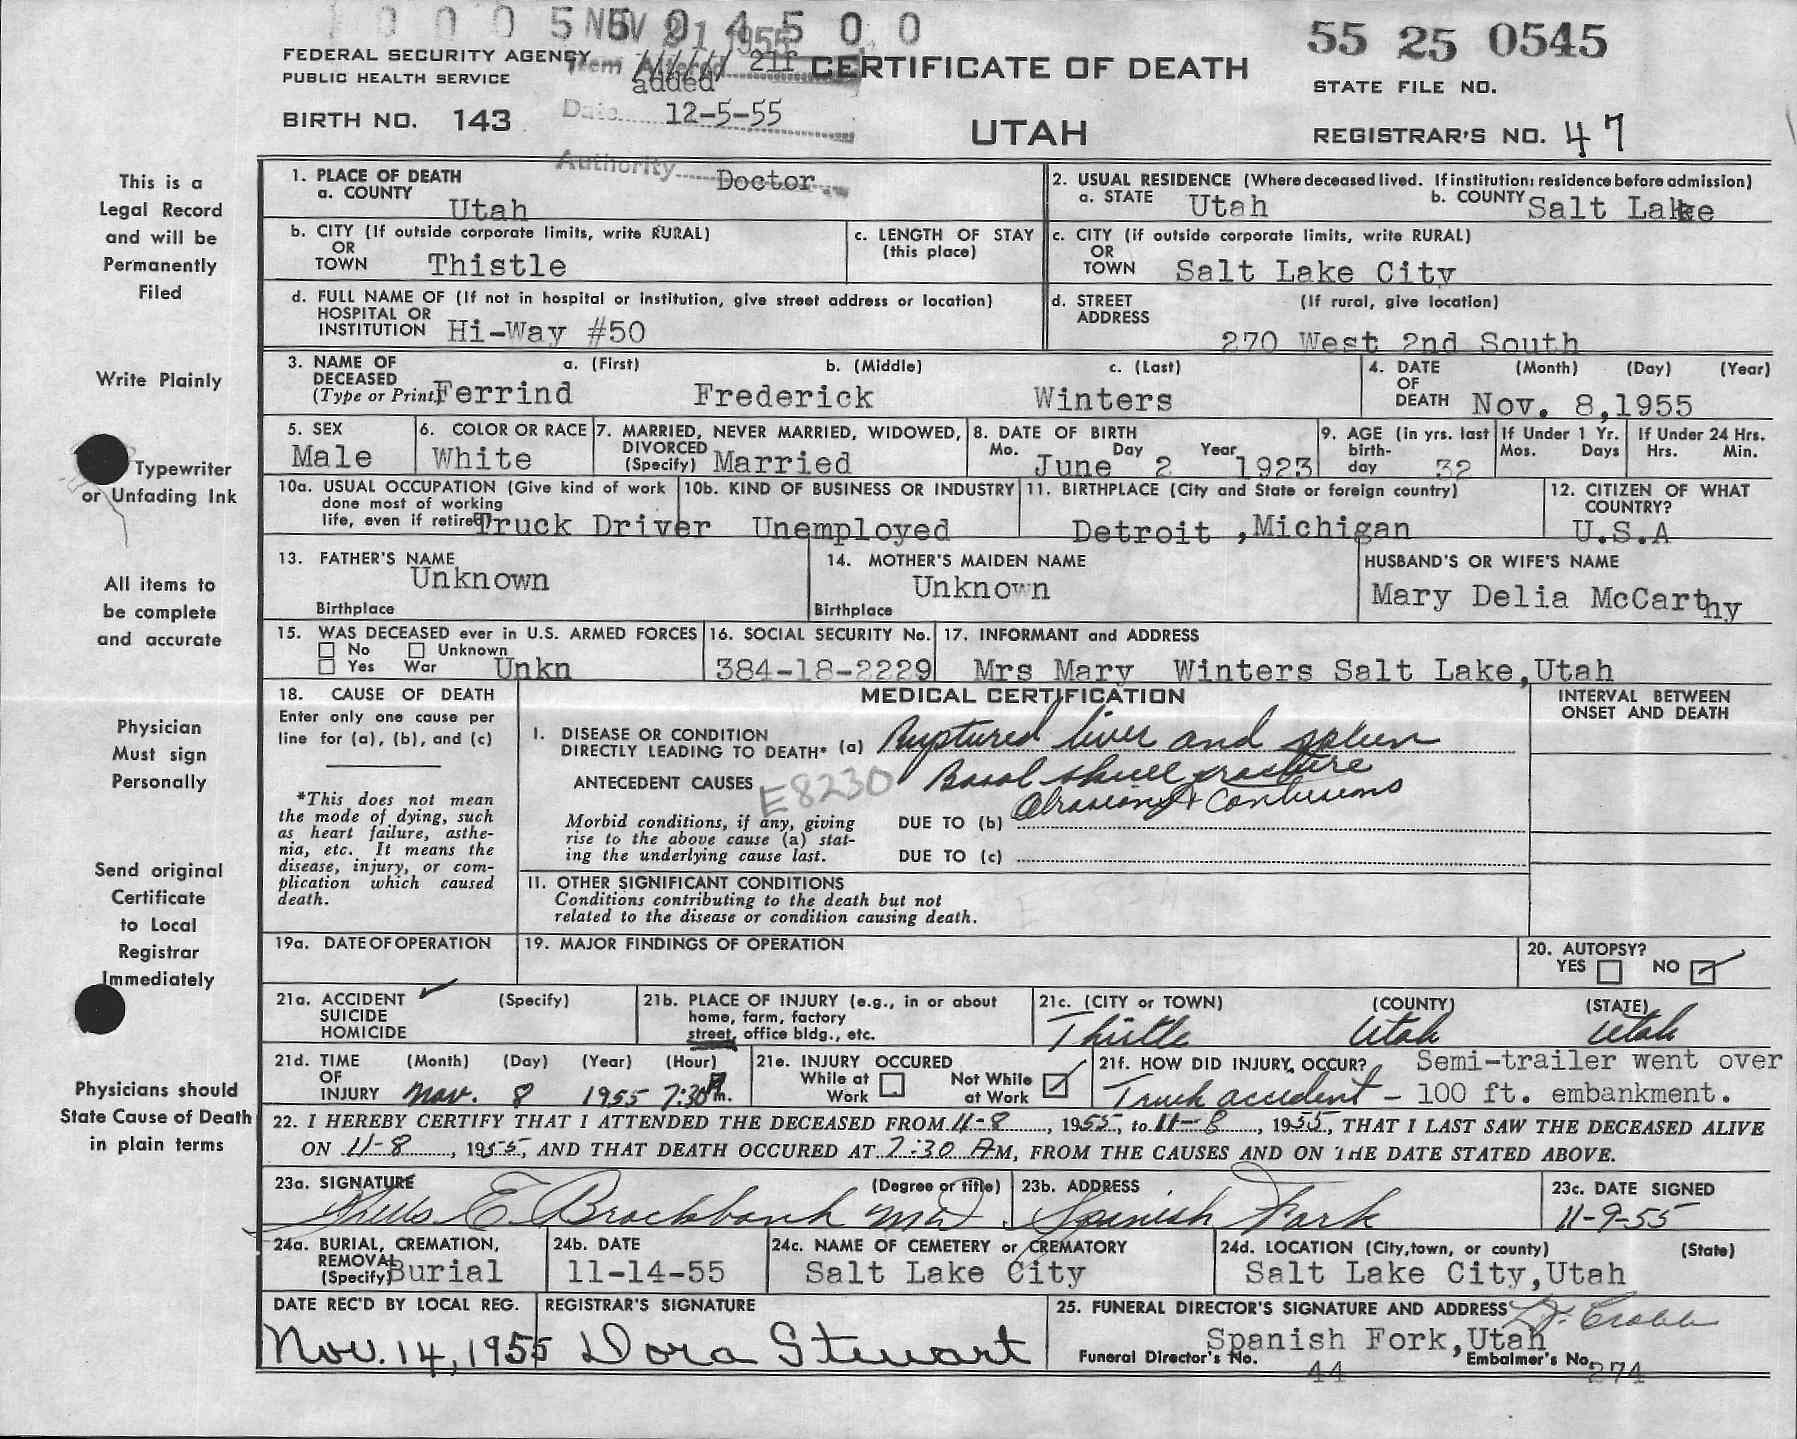 1 0 0 0 5 5 0 4 5 0 0
NOV 21 1955
55 25 0545
FEDERAL SECURITY AGENCY
PUBLIC HEALTH SERVICE
Item Altered 21f
added
CERTIFICATE OF DEATH
STATE FILE NO.
BIRTH NO. 143
Date 12-5-55
UTAH
REGISTRAR'S NO. 47
Authority Doctor
This is a
Legal Record
and will be
Permanently
Filed
Write Plainly
Typewriter
or Unfading Ink
All items to
be complete
and accurate
Physician
Must sign
Personally
Send original
Certificate
to Local
Registrar
Immediately
Physicians should
State Cause of Death
in plain terms
1. PLACE OF DEATH
a. COUNTY
Utah
2. USUAL RESIDENCE (Where deceased lived. If institution: residence before admission)
a. STATE Utah b. COUNTY Salt Lake
b. CITY (If outside corporate limits, write RURAL)
OR
TOWN Thistle
c. LENGTH OF STAY
(this place)
c. CITY (if outside corporate limits, write RURAL)
OR
TOWN Salt Lake City
d. FULL NAME OF (If not in hospital or institution, give street address or location)
HOSPITAL OR
INSTITUTION Hi-Way #50
d. STREET (If rural, give location)
ADDRESS
270 West 2nd South
3. NAME OF DECEASED (Type or Print) a. (First) b. (Middle) c. (Last)
Ferrind Frederick Winters
4. DATE OF DEATH (Month) (Day) (Year)
Nov. 8,1955
5. SEX
Male
6. COLOR OR RACE
White
7. MARRIED, NEVER MARRIED, WIDOWED,
DIVORCED
(Specify) Married
8. DATE OF BIRTH
Mo. Day Year
June 2 1923
9. AGE (in yrs. last
birth-
day 32
If Under 1 Yr.
Mos. Days
If Under 24 Hrs.
Hrs. Min.
10a. USUAL OCCUPATION (Give kind of work
done most of working
life, even if retired) Truck Driver
10b. KIND OF BUSINESS OR INDUSTRY
Unemployed
11. BIRTHPLACE (City and State or foreign country)
Detroit ,Michigan
12. CITIZEN OF WHAT
COUNTRY?
U.S.A
13. FATHER'S NAME
Unknown
Birthplace
14. MOTHER'S MAIDEN NAME
Unknown
Birthplace
HUSBAND'S OR WIFE'S NAME
Mary Delia McCarthy
15. WAS DECEASED ever in U.S. ARMED FORCES
No Unknown
Yes War Unkn
16. SOCIAL SECURITY No.
384-18-2229
17. INFORMANT and ADDRESS
Mrs Mary Winters Salt Lake,Utah
18. CAUSE OF DEATH
Enter only one cause per
line for (a), (b), and (c)
*This does not mean
the mode of dying, such
as heart failure, asthe-
nia, etc. It means the
disease, injury, or com-
plication which caused
death.
MEDICAL CERTIFICATION
INTERVAL BETWEEN
ONSET AND DEATH
I. DISEASE OR CONDITION
DIRECTLY LEADING TO DEATH* (a) Ruptured liver and spleen
ANTECEDENT CAUSES E8230 Basal skull fracture
Abrasions + Contusions
Morbid conditions, if any, giving
rise to the above cause (a) stat-
ing the underlying cause last.
DUE TO (b)
DUE TO (c)
II. OTHER SIGNIFICANT CONDITIONS
Conditions contributing to the death but not
related to the disease or condition causing death.
19a. DATE OF OPERATION
19. MAJOR FINDINGS OF OPERATION
20. AUTOPSY?
YES NO ✓
21a. ACCIDENT ✓ (Specify)
SUICIDE
HOMICIDE
21b. PLACE OF INJURY (e.g., in or about
home, farm, factory
street, office bldg., etc.
21c. (CITY or TOWN) (COUNTY) (STATE)
Thistle Utah Utah
21d. TIME OF INJURY (Month) (Day) (Year) (Hour)
Nov. 8 1955 7:30 m.
21e. INJURY OCCURED
While at Work
Not While at Work ✓
21f. HOW DID INJURY OCCUR? Semi-trailer went over
Truck accident - 100 ft. embankment.
22. I HEREBY CERTIFY THAT I ATTENDED THE DECEASED FROM 11-8, 1955, to 11-8, 1955, THAT I LAST SAW THE DECEASED ALIVE
ON 11-8, 1955, AND THAT DEATH OCCURED AT 7:30 M, FROM THE CAUSES AND ON THE DATE STATED ABOVE.
23a. SIGNATURE (Degree or title)
E. Brockbank MD
23b. ADDRESS
Spanish Fork
23c. DATE SIGNED
11-9-55
24a. BURIAL, CREMATION,
REMOVAL
(Specify) Burial
24b. DATE
11-14-55
24c. NAME OF CEMETERY or CREMATORY
Salt Lake City
24d. LOCATION (City, town, or county) (State)
Salt Lake City,Utah
DATE REC'D BY LOCAL REG.
Nov. 14, 1955
REGISTRAR'S SIGNATURE
Dora Stewart
25. FUNERAL DIRECTOR'S SIGNATURE AND ADDRESS
Spanish Fork,Utah
Funeral Director's No. 44
Embalmer's No. 274